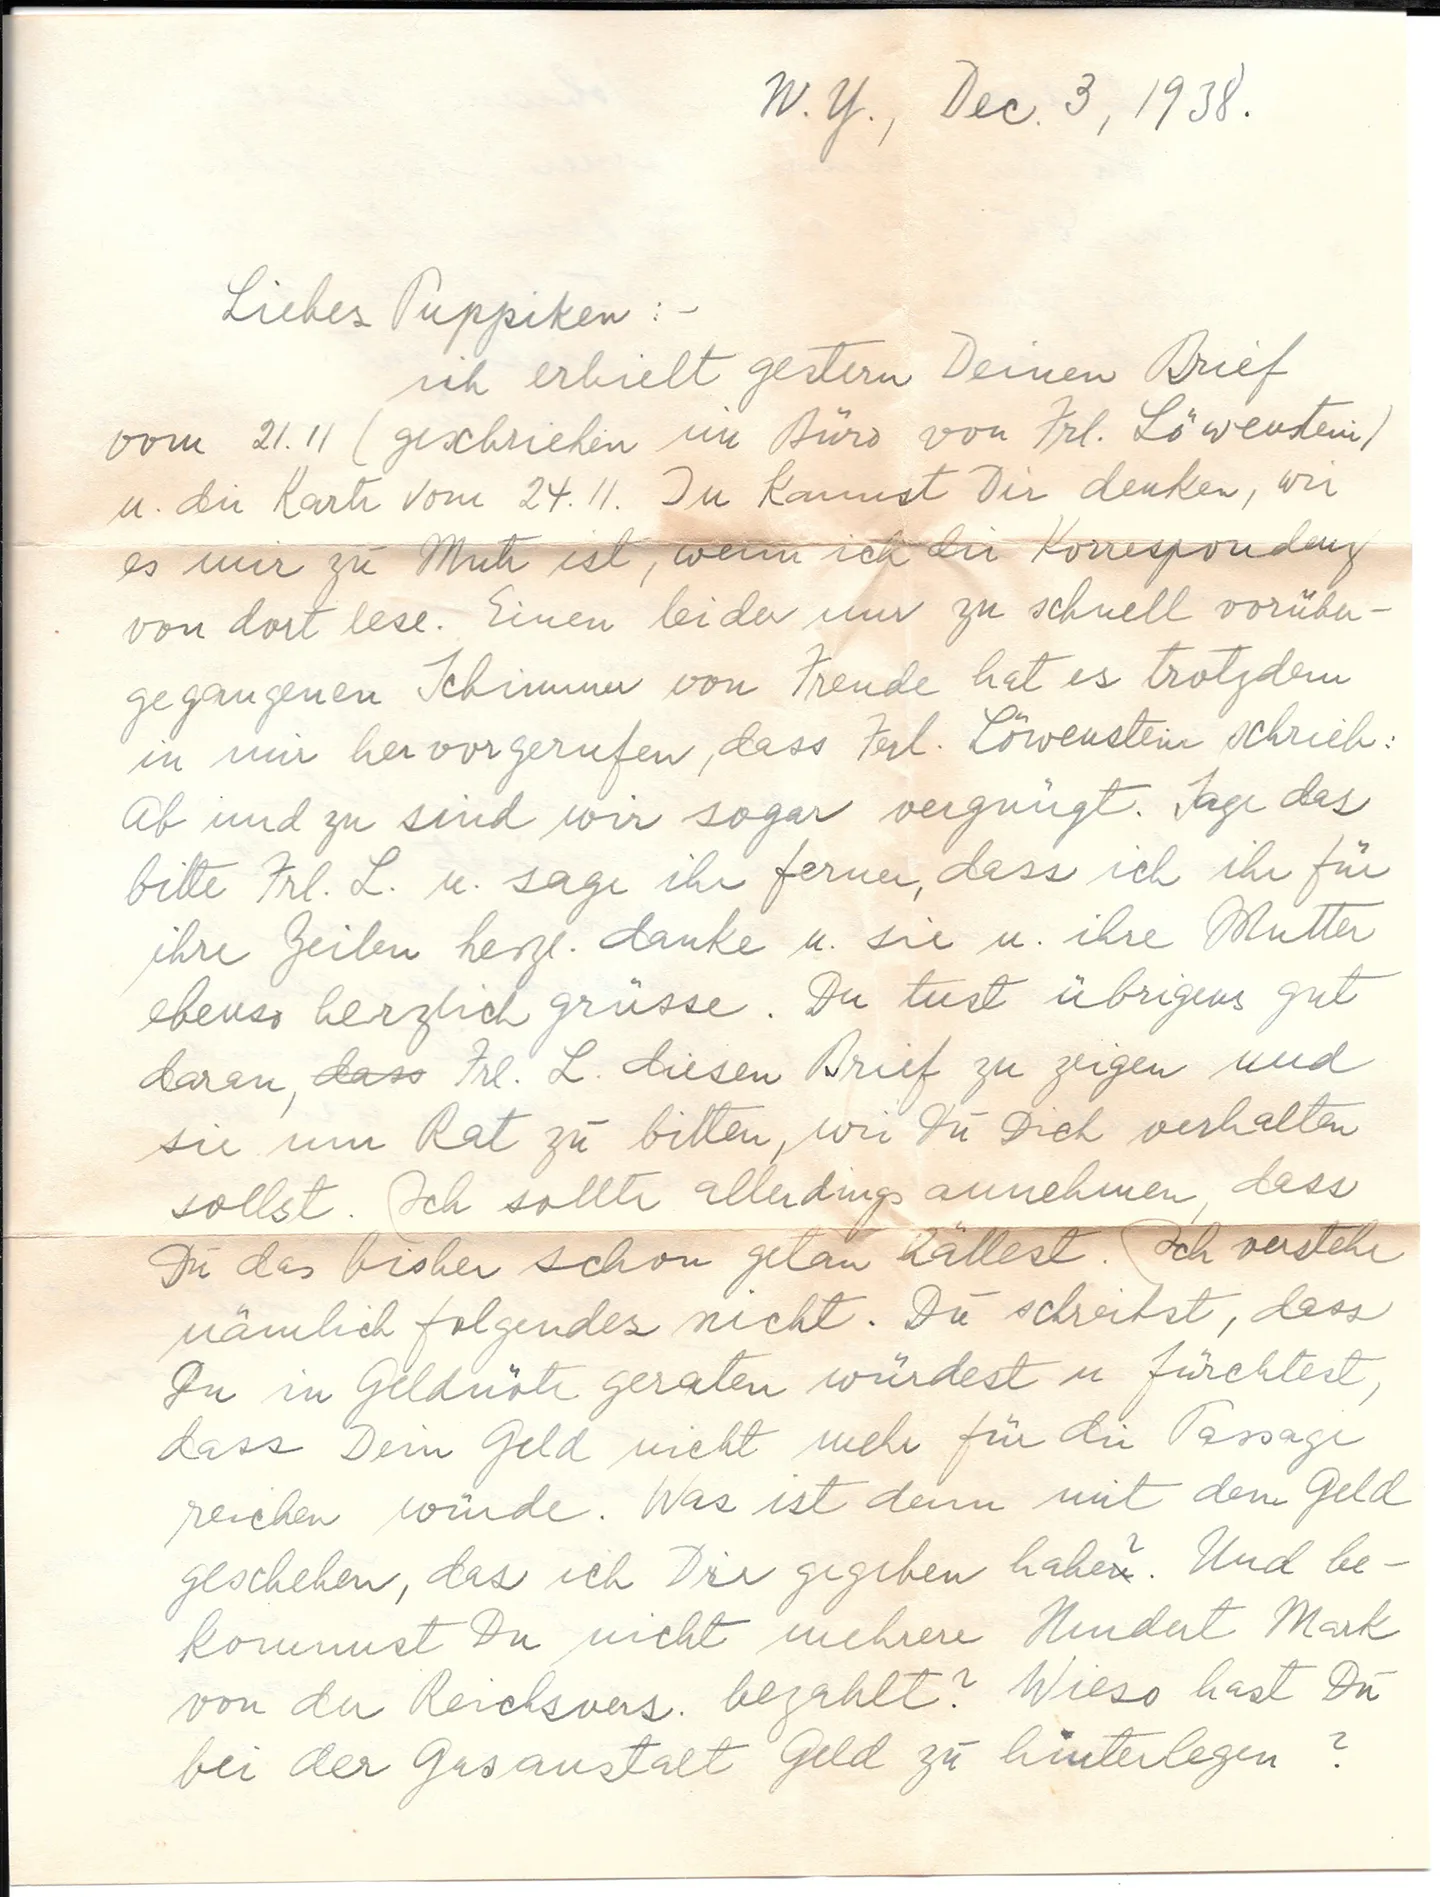 N.Y., Dec. 3, 1938.
Liebes Puppiken :-
ich erhielt gestern Deinen Brief
vom 21.11 (geschrieben im Büro von Frl. Löwenstein)
u. die Karte vom 24.11. Du kannst Dir denken, wie
es mir zu Mute ist, wenn ich die Korrespondenz
von dort lese. Einen leider nur zu schnell vorüber-
gegangenen Schimmer von Freude hat es trotzdem
in mir hervorgerufen, dass Frl. Löwenstein schrieb:
Ab und zu sind wir sogar vergnügt. Sage das
bitte Frl. L. u. sage ihr ferner, dass ich ihr für
ihre Zeilen herzl. danke u. sie u. ihre Mutter
ebenso herzlich grüsse. Du tust übrigens gut
daran, dass Frl. L. diesen Brief zu zeigen und
sie um Rat zu bitten, wie Du Dich verhalten
sollst. Ich sollte allerdings annehmen, dass
Du das bisher schon getan hättest. Ich verstehe
nämlich folgendes nicht. Du schreibst, dass
Du in Geldnöte geraten würdest u fürchtest,
dass Dein Geld nicht mehr für die Passage
reichen würde. Was ist denn mit dem Geld
geschehen, das ich Dir gegeben habe?. Und be-
kommst Du nicht mehrere Hundert Mark
von der Reichsvers. bezahlt? Wieso hast Du
bei der Gasanstalt Geld zu hinterlegen ?